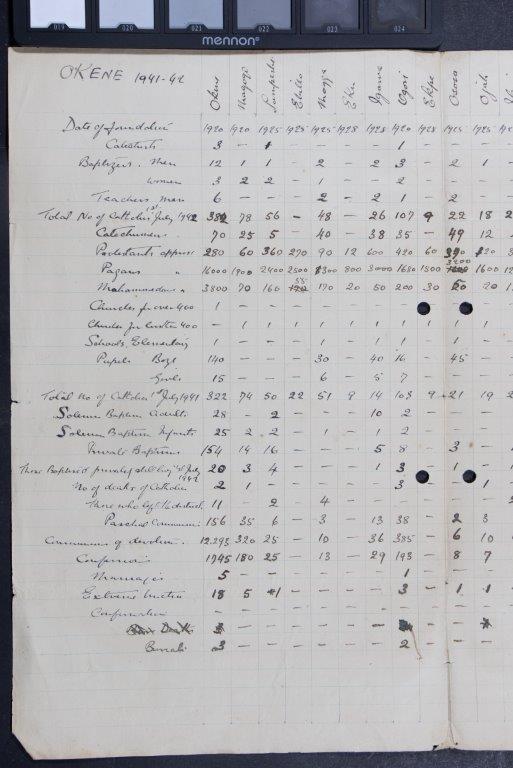 019 020 021 022 023 024
mennon
OKENE 1941-42
Okene Magogo Ebiko Mogga Eku Igawe Ogori Ekpe Ososo Ojah
Date of foundation 1920 1920 1925 1925 1925 1928 1928 1920 1928 1925 1925
Catechists 3 — 1 — — — — 1 — — —
Baptizers. Men 12 1 1 — 2 — 2 3 — 2 1 —
Women 3 2 2 — 1 — — 2 — — —
Teachers Men 6 — — — 2 — 2 1 — 2 — —
Total No of Catholics 1st July 1942 382 78 56 — 48 — 26 107 9 22 18
Catechumens 70 25 5 — 40 — 38 35 — 49 12
Protestants approx 280 60 360 270 90 12 600 420 60
Pagans " 16000 1900 2400 2500 800 3000 1680 1800 3200 1600
Mohammedans " 3800 70 160 55 170 20 50 200 30 20
Churches for over 400 1 — — — — — — — — —
Churches for less than 400 — 1 1 1 1 1 1 1 1 1 1
Schools Elementary 1 — — — 1 — 1 1 — 1 —
Pupils Boys 140 — — — 30 — 40 16 — 45 —
Girls 15 — — — 6 — 5 7 — — —
Total No of Catholics 1st July 1941 322 74 50 22 51 9 14 108 9 21 19
Solemn Baptism Adults 28 — 2 — — — 10 2 — — —
Solemn Baptism Infants 25 2 2 — 1 — 1 2 — — —
Private Baptisms 154 14 16 — — — 5 8 — 3 —
Those Baptised privately still living 1st July 1942 20 3 4 — — — 1 3 1 —
No of deaths of Catholics 2 1 — — — — — 3 — — 1
Those who left the district 11 — 2 — 4 — — — — — —
Paschal Communions 156 35 6 — 3 — 13 38 — 2 3
Communions of devotion. 12.293 320 25 — 10 — 36 385 — 6 10
Confessions 1745 180 25 — 13 — 29 193 — 8 7
Marriages 5 — — — — — — 1 — — —
Extreme Unction 18 5 1 — — — — 3 — 1 1
Confirmation — — — — — — — — — — —
Burials 3 — — — — — — 2 — — —